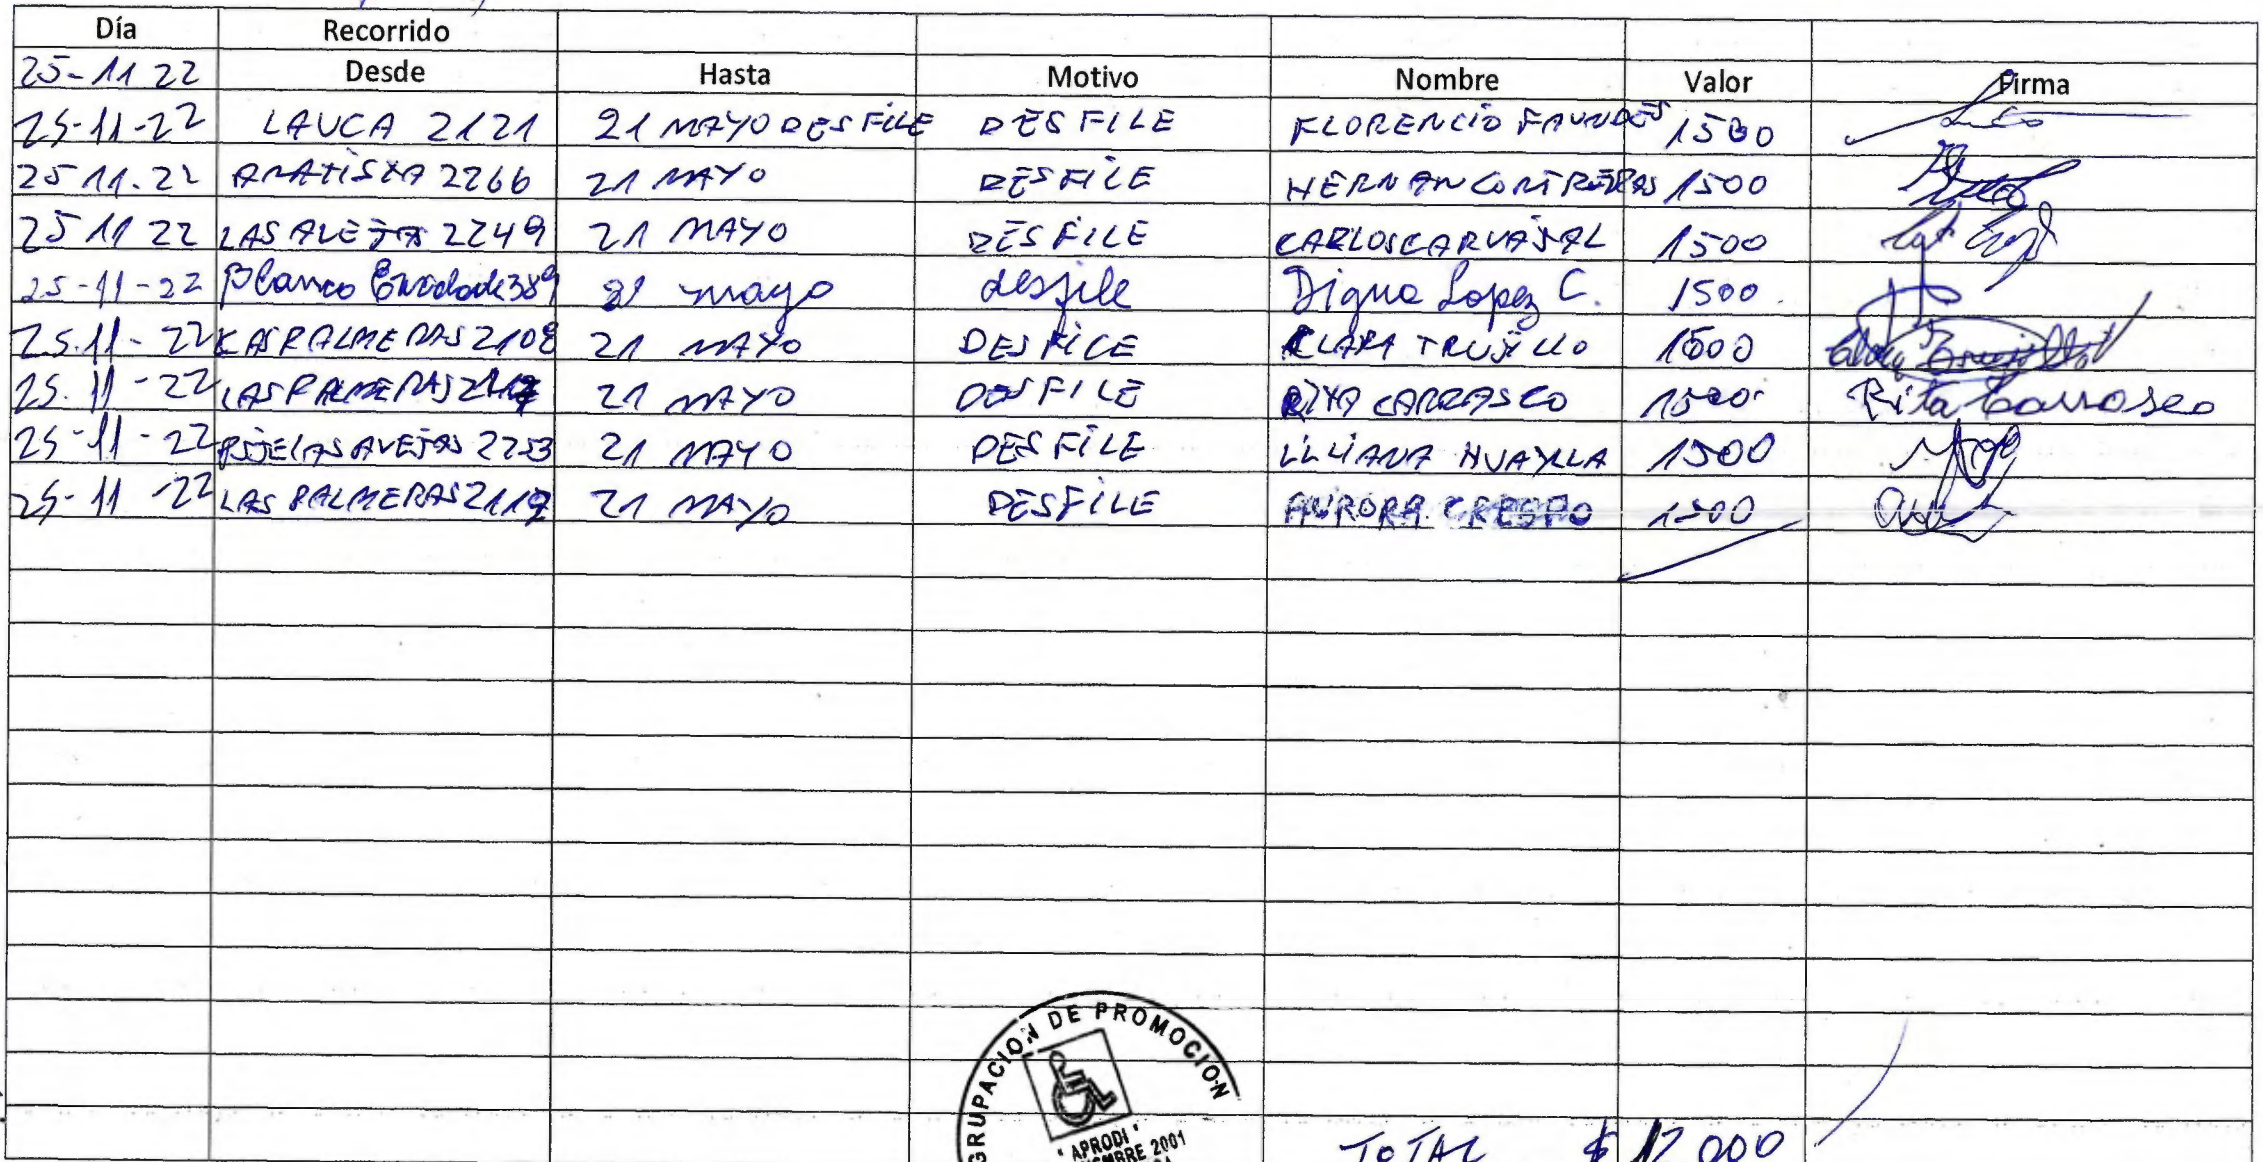 Día Recorrido
25-11 22 Desde Hasta Motivo Nombre Valor Firma
25-11-22 LAUCA 2121 21 MAYO DESFILE DESFILE FLORENCIO FAUNDES 1500
25 11.22 AMATISTA 2266 21 MAYO DESFILE HERNAN CONTRERAS 1500
25 11 22 LAS AVEJAS 2249 21 MAYO DESFILE CARLOS CARVAJAL 1500
25-11-22 Blanco 389 21 mayo desfile Digna Lopez C. 1500
25.11-22 LAS PALMERAS 2108 21 MAYO DESFILE CLARA TRUJILLO 1500
25.11-22 LAS PALMERAS 21 MAYO DESFILE RITA CARRASCO 1500 Rita Carrasco
25-11-22 PJE LAS AVEJAS 2253 21 MAYO DESFILE LILIANA HUAYLLA 1500
25-11-22 LAS PALMERAS 2112 21 MAYO DESFILE AURORA CRESPO 1500
GRUPACION DE PROMOCION
" APRODI "
MBRE 2001
TOTAL $ 12 000